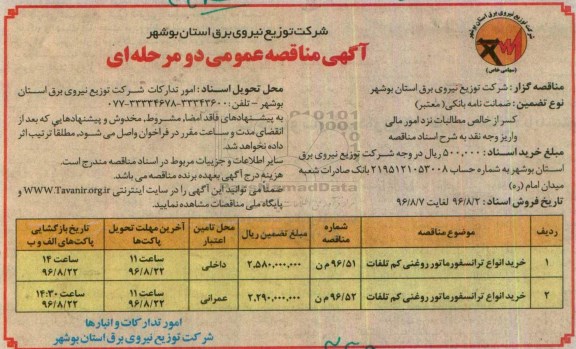 شرکت توزیع نیروی برق استان بوشهر
آگهی مناقصه عمومی دو مرحله‌ای
شرکت توزیع نیروی برق استان بوشهر
(سهامی خاص)
مناقصه گزار: شرکت توزیع نیروی برق استان بوشهر
نوع تضمین: ضمانت نامه بانکی (معتبر)
کسر از خالص مطالبات نزد امور مالی
واریز وجه نقد به شرح اسناد مناقصه
مبلغ خرید اسناد: ۵۰۰,۰۰۰ ریال در وجه شرکت توزیع نیروی برق
استان بوشهر به شماره حساب ۲۱۹۵۱۲۱۰۵۳۰۰۸ بانک صادرات شعبه
میدان امام (ره)
تاریخ فروش اسناد: ۹۶/۸/۲ لغایت ۹۶/۸/۷
محل تحویل اسناد: امور تدارکات شرکت توزیع نیروی برق استان
بوشهر – تلفن: ۳۳۳۴۳۶۰۰-۳۳۳۳۴۶۷۸-۰۷۷
به پیشنهادهای فاقد امضا، مشروط، مخدوش و پیشنهادهایی که بعد از
انقضای مدت و ساعت مقرر در فراخوان واصل می شود، مطلقا ترتیب اثر
داده نخواهد شد.
سایر اطلاعات و جزییات مربوط در اسناد مناقصه مندرج است.
هزینه درج آگهی بعهده برنده مناقصه می باشد.
ضمنا می توانید این آگهی را در سایت اینترنتی WWW.Tavanir.org.ir
و پایگاه ملی مناقصات مشاهده نمایید.
ردیف موضوع مناقصه شماره مناقصه مبلغ تضمین ریال محل تامین اعتبار آخرین مهلت تحویل پاکت‌ها تاریخ بازگشایی پاکت‌های الف و ب
۱ خرید انواع ترانسفورماتور روغنی کم تلفات ۹۶/۵۱ م ن ۲,۵۸۰,۰۰۰,۰۰۰ داخلی ساعت ۱۱ ۹۶/۸/۲۲ ساعت ۱۴ ۹۶/۸/۲۲
۲ خرید انواع ترانسفورماتور روغنی کم تلفات ۹۶/۵۲ م ن ۲,۲۹۰,۰۰۰,۰۰۰ عمرانی ساعت ۱۱ ۹۶/۸/۲۲ ساعت ۱۴:۳۰ ۹۶/۸/۲۲
امور تدارکات و انبارها
شرکت توزیع نیروی برق استان بوشهر